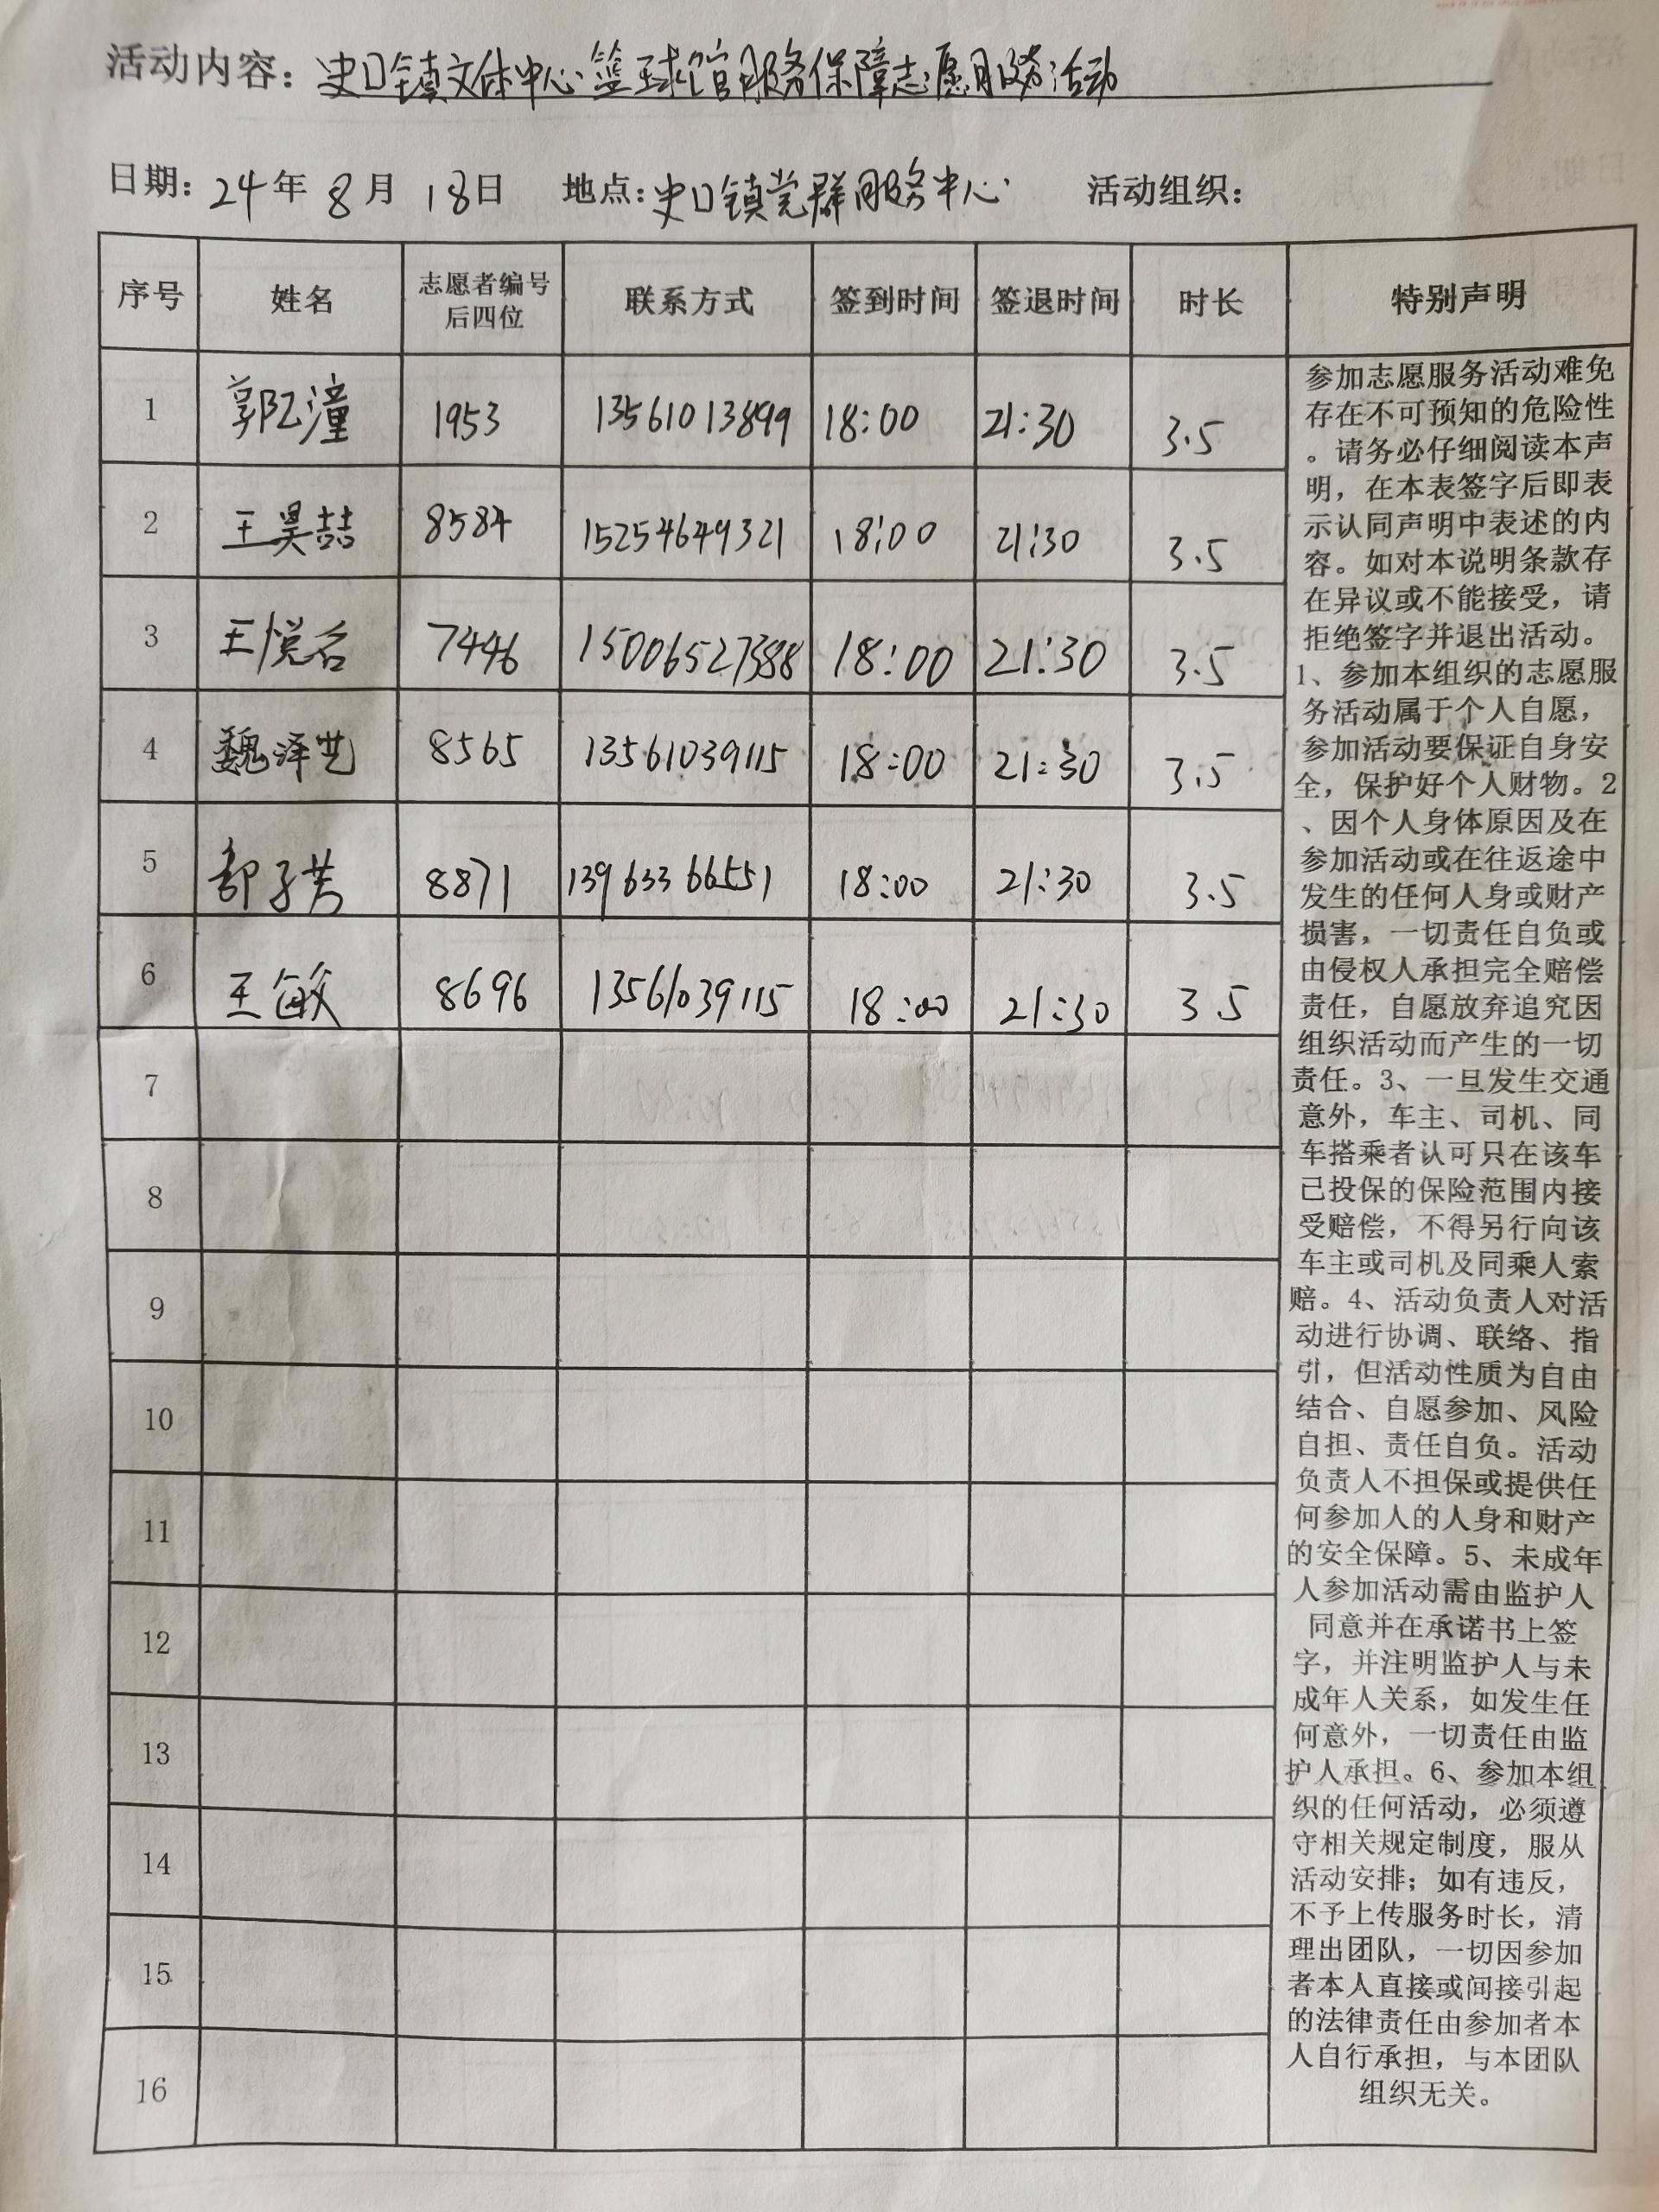 活动内容：史口镇文体中心篮球馆服务保障志愿服务活动
日期：24年 8月 18日 地点：史口镇党群服务中心 活动组织：
序号 姓名 志愿者编号后四位 联系方式 签到时间 签退时间 时长 特别声明
1 郭乙潼 1953 13561013899 18:00 21:30 3.5
2 王昊喆 8584 15254649321 18:00 21:30 3.5
3 王悦名 7446 15006527388 18:00 21:30 3.5
4 魏泽艺 8565 13561039115 18:00 21:30 3.5
5 子芳 8871 13963366551 18:00 21:30 3.5
6 王敏 8696 13561039115 18:00 21:30 3.5
7
8
9
10
11
12
13
14
15
16
参加志愿服务活动难免
存在不可预知的危险性
。请务必仔细阅读本声
明，在本表签字后即表
示认同声明中表述的内
容。如对本说明条款存
在异议或不能接受，请
拒绝签字并退出活动。
1、参加本组织的志愿服
务活动属于个人自愿，
参加活动要保证自身安
全，保护好个人财物。2
、因个人身体原因及在
参加活动或在往返途中
发生的任何人身或财产
损害，一切责任自负或
由侵权人承担完全赔偿
责任，自愿放弃追究因
组织活动而产生的一切
责任。3、一旦发生交通
意外，车主、司机、同
车搭乘者认可只在该车
已投保的保险范围内接
受赔偿，不得另行向该
车主或司机及同乘人索
赔。4、活动负责人对活
动进行协调、联络、指
引，但活动性质为自由
结合、自愿参加、风险
自担、责任自负。活动
负责人不担保或提供任
何参加人的人身和财产
的安全保障。5、未成年
人参加活动需由监护人
同意并在承诺书上签
字，并注明监护人与未
成年人关系，如发生任
何意外，一切责任由监
护人承担。6、参加本组
织的任何活动，必须遵
守相关规定制度，服从
活动安排；如有违反，
不予上传服务时长，清
理出团队，一切因参加
者本人直接或间接引起
的法律责任由参加者本
人自行承担，与本团队
组织无关。